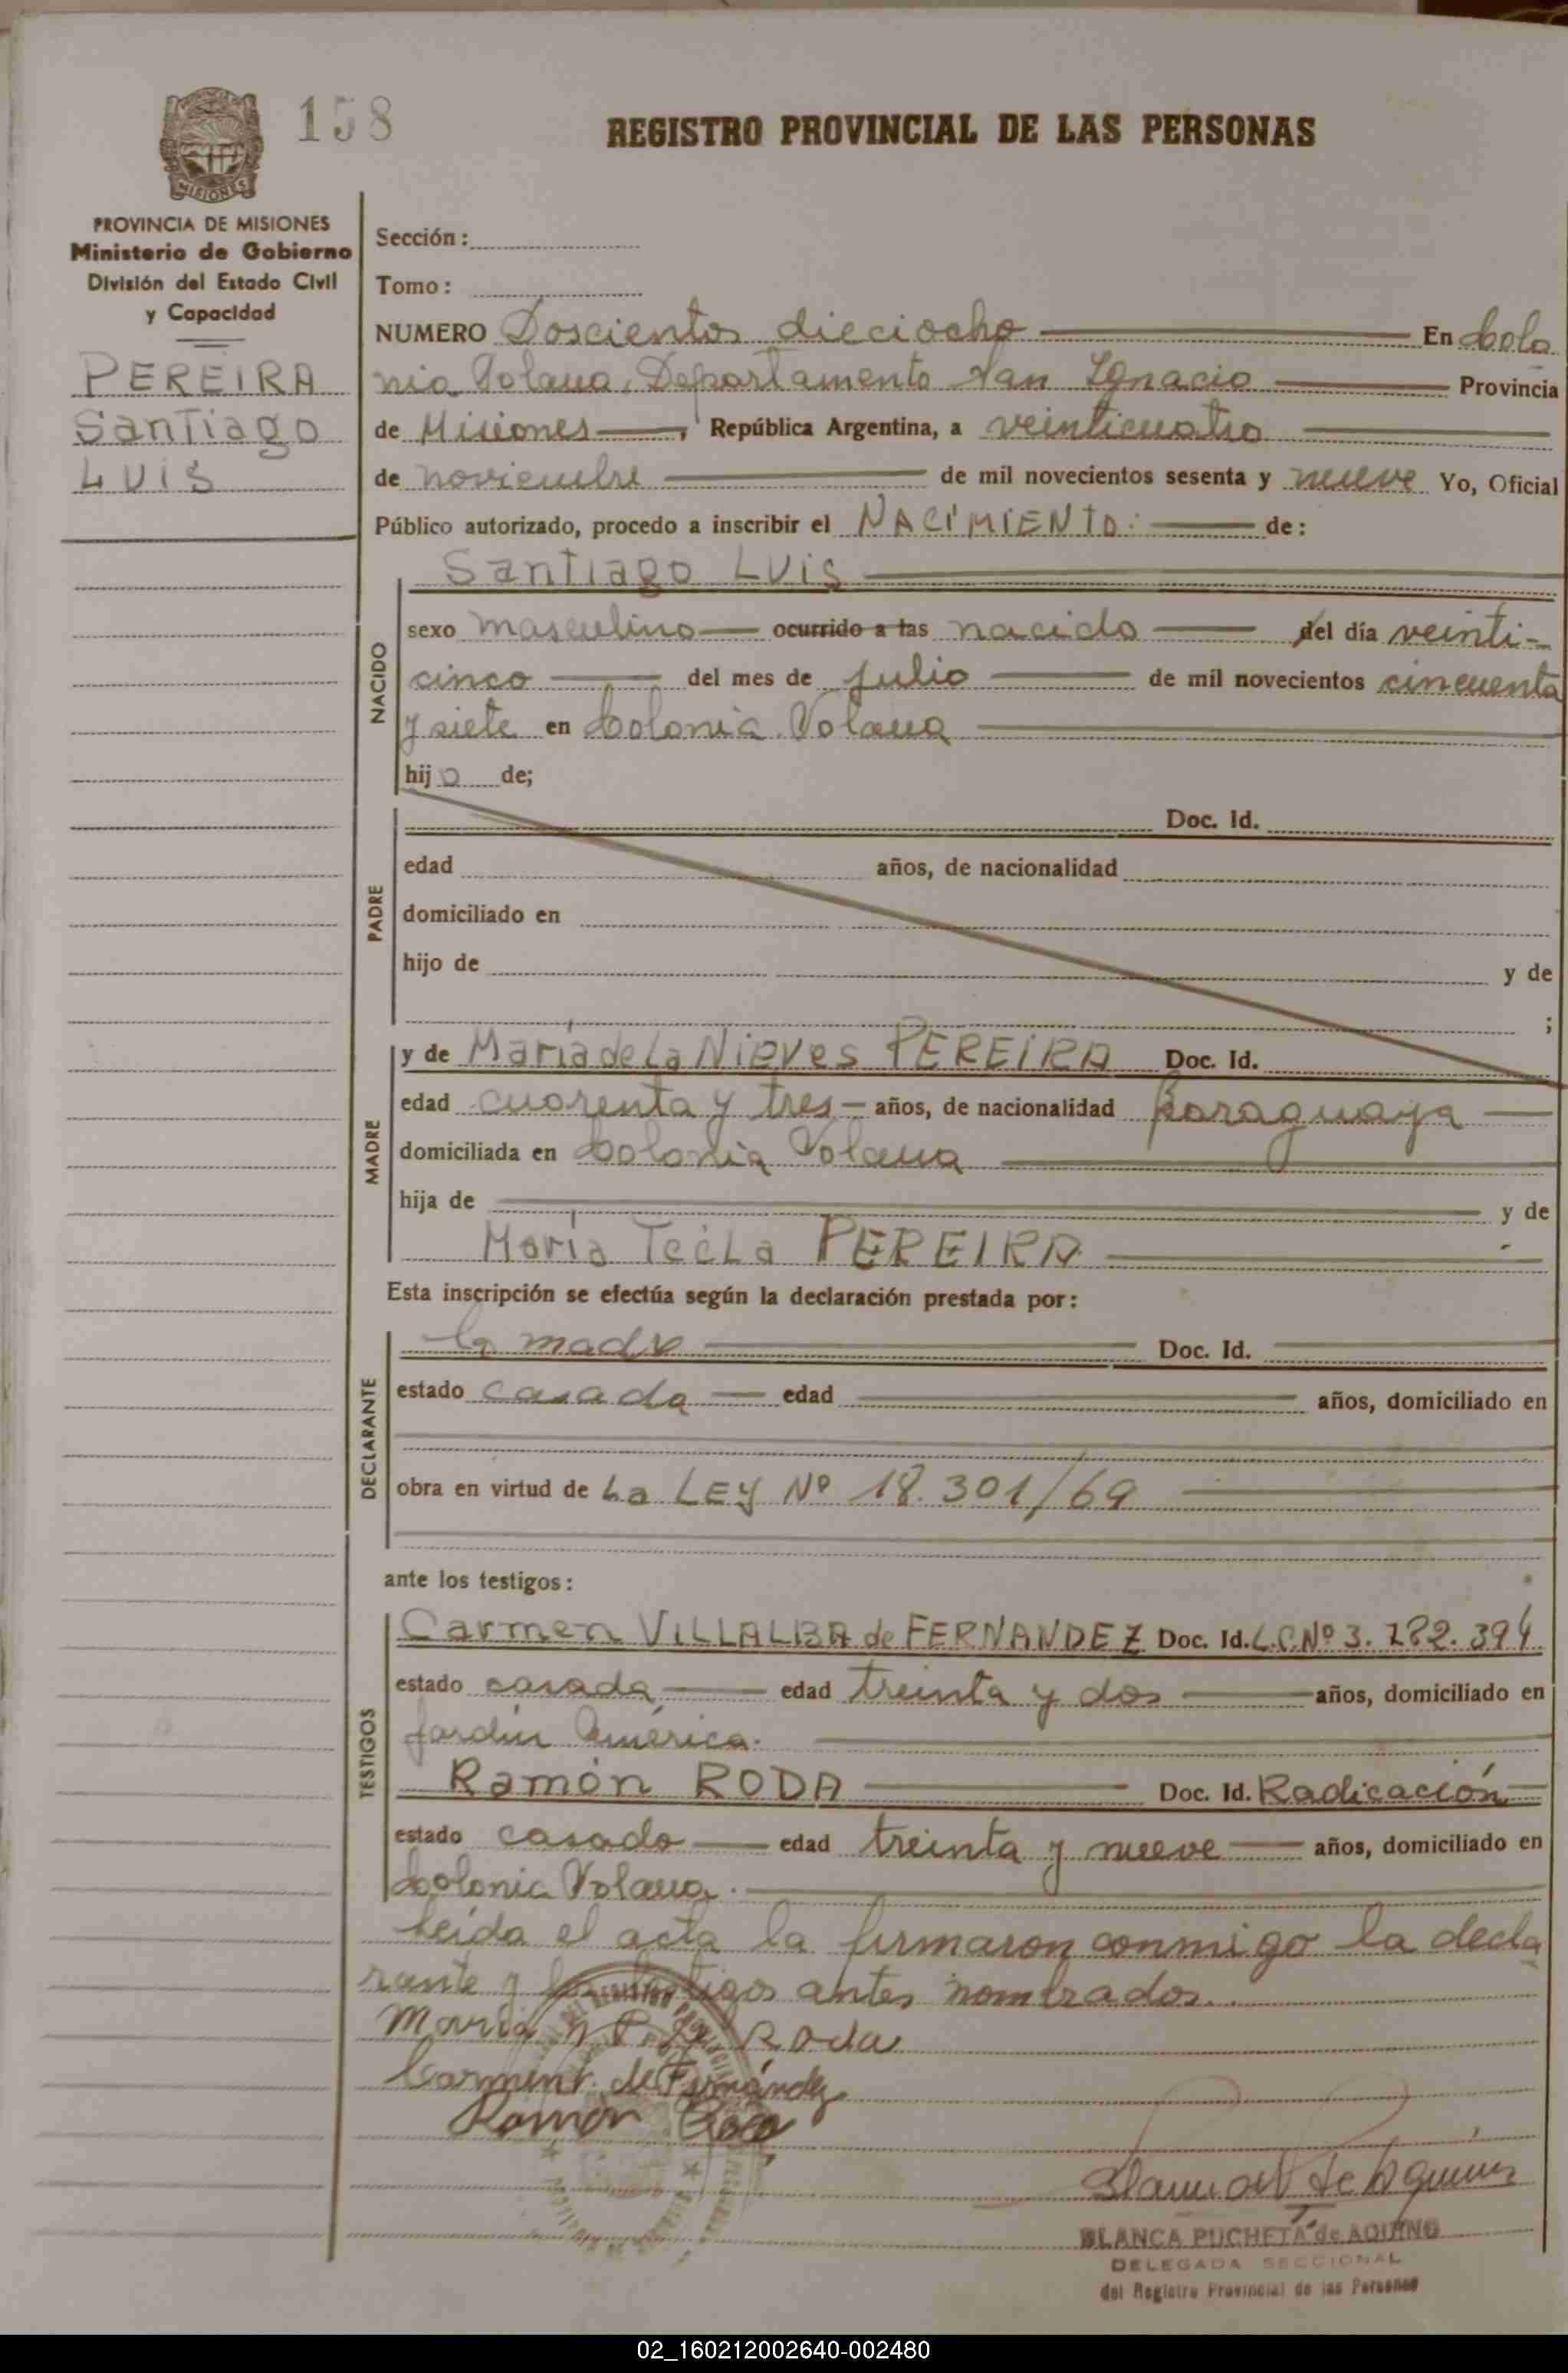 158
REGISTRO PROVINCIAL DE LAS PERSONAS
MISIONES
PROVINCIA DE MISIONES
Ministerio de Gobierno
División del Estado Civil
y Capacidad
PEREIRA
Santiago
Luis
Sección:
Tomo:
NUMERO Doscientos dieciocho En Colo
nia Polana, Departamento San Ignacio Provincia
de Misiones, República Argentina, a veinticuatro
de noviembre de mil novecientos sesenta y nueve Yo, Oficial
Público autorizado, procedo a inscribir el NACIMIENTO: de:
Santiago Luis
NACIDO
sexo masculino ocurrido a las nacido del día veinti-
cinco del mes de julio de mil novecientos cincuenta
y siete en Colonia Polana
hijo de;
PADRE
Doc. Id.
edad años, de nacionalidad
domiciliado en
hijo de y de
;
MADRE
y de María de La Nieves PEREIRA Doc. Id.
edad cuarenta y tres años, de nacionalidad Paraguaya
domiciliada en Colonia Polana
hija de y de
María Tecla PEREIRA
Esta inscripción se efectúa según la declaración prestada por:
DECLARANTE
la madre Doc. Id.
estado casada edad años, domiciliado en
obra en virtud de La LEY Nº 18.301/69
ante los testigos:
TESTIGOS
Carmen VILLALBA de FERNANDEZ Doc. Id. L.C.Nº 3.182.394
estado casada edad treinta y dos años, domiciliado en
Jardín América.
Ramón RODA Doc. Id. Radicación
estado casado edad treinta y nueve años, domiciliado en
Colonia Polana.
Leída el acta la firmaron conmigo la decla
rante y los testigos antes nombrados.
Maria N P de Roda
Carmen V. de Fernández
Ramon Roda
BLANCA PUCHETA de AQUINO
DELEGADA SECCIONAL
del Registro Provincial de las Personas
02_160212002640-002480